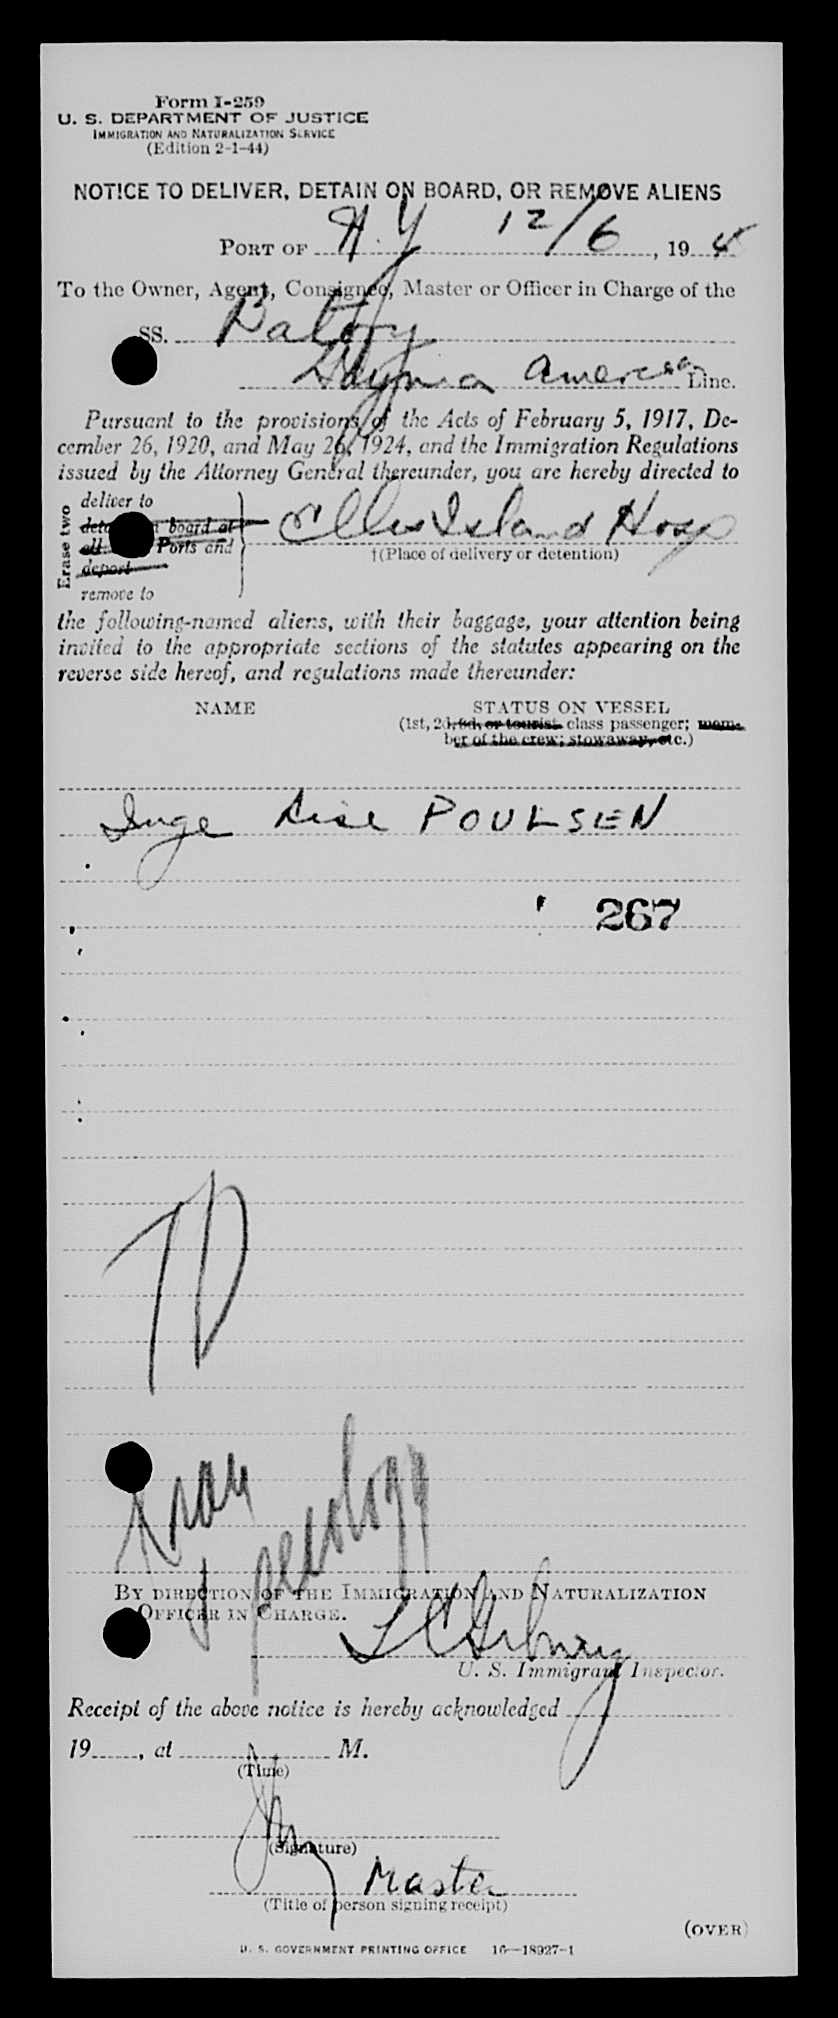 Form I-259
U. S. DEPARTMENT OF JUSTICE
IMMIGRATION AND NATURALIZATION SERVICE
(Edition 2-1-44)
NOTICE TO DELIVER, DETAIN ON BOARD, OR REMOVE ALIENS
PORT OF N.Y 12/6, 194
To the Owner, Agent, Consignee, Master or Officer in Charge of the
SS. Batory
Gdynia America Line.
Pursuant to the provisions of the Acts of February 5, 1917, De-
cember 26, 1920, and May 26, 1924, and the Immigration Regulations
issued by the Attorney General thereunder, you are hereby directed to
Erase two
deliver to
board at
all Ports and
deport
remove to
Ellis Island Hosp
†(Place of delivery or detention)
the following-named aliens, with their baggage, your attention being
invited to the appropriate sections of the statutes appearing on the
reverse side hereof, and regulations made thereunder:
NAME STATUS ON VESSEL
(1st, 2d, 3d, or tourist class passenger; mem-
ber of the crew; stowaway, etc.)
Inge Lise POULSEN
267
TD
BY DIRECTION OF THE IMMIGRATION AND NATURALIZATION
OFFICER IN CHARGE.
U. S. Immigrant Inspector.
Receipt of the above notice is hereby acknowledged
19, at M.
(Time)
(Signature)
Master
(Title of person signing receipt)
(OVER)
U. S. GOVERNMENT PRINTING OFFICE 16—18927-1